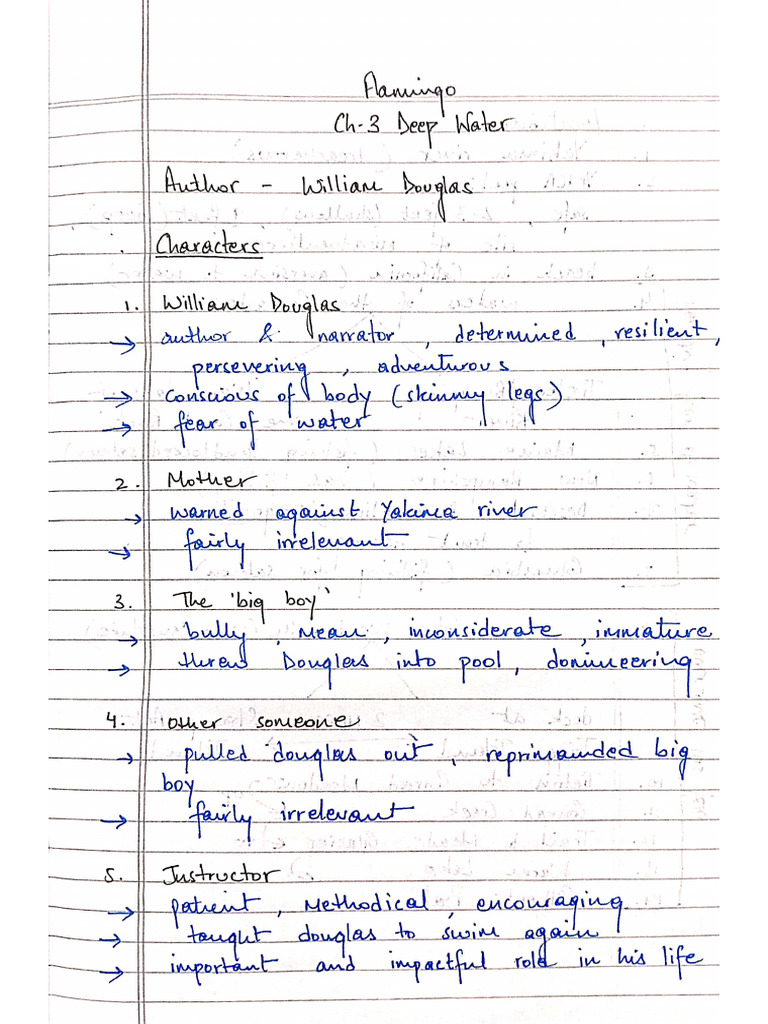 Flamingo
Ch-3 Deep Water
Author - William Douglas
Characters
1. William Douglas
→ author & narrator, determined, resilient,
persevering, adventurous
→ conscious of body (skinny legs)
→ fear of water
2. Mother
→ warned against Yakima river
→ fairly irrelevant
3. The 'big boy'
→ bully, mean, inconsiderate, immature
→ threw Douglas into pool, domineering
4. other someone
→ pulled douglas out, reprimanded big
boy
→ fairly irrelevant
5. Instructor
→ patient, methodical, encouraging
→ taught douglas to swim again
→ important and impactful role in his life